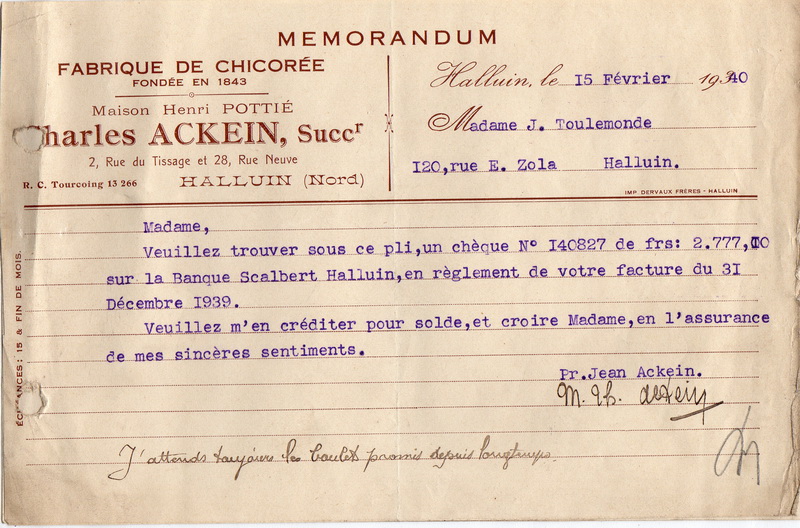 MEMORANDUM
FABRIQUE DE CHICORÉE
FONDÉE EN 1843
Maison Henri POTTIÉ
Charles ACKEIN, Succr
2, Rue du Tissage et 28, Rue Neuve
R. C. Tourcoing 13 266 HALLUIN (Nord)
Halluin, le 15 Février 1940
Madame J. Toulemonde
120,rue E. Zola Halluin.
IMP DERVAUX FRÈRES - HALLUIN
ÉCHÉANCES : 15 & FIN DE MOIS.
Madame,
Veuillez trouver sous ce pli,un chèque N° 140827 de frs: 2.777,00
sur la Banque Scalbert Halluin,en règlement de votre facture du 31
Décembre 1939.
Veuillez m'en créditer pour solde,et croire Madame,en l'assurance
de mes sincères sentiments.
Pr.Jean Ackein.
M. Th. Ackein
J'attends toujours les boulets promis depuis longtemps.